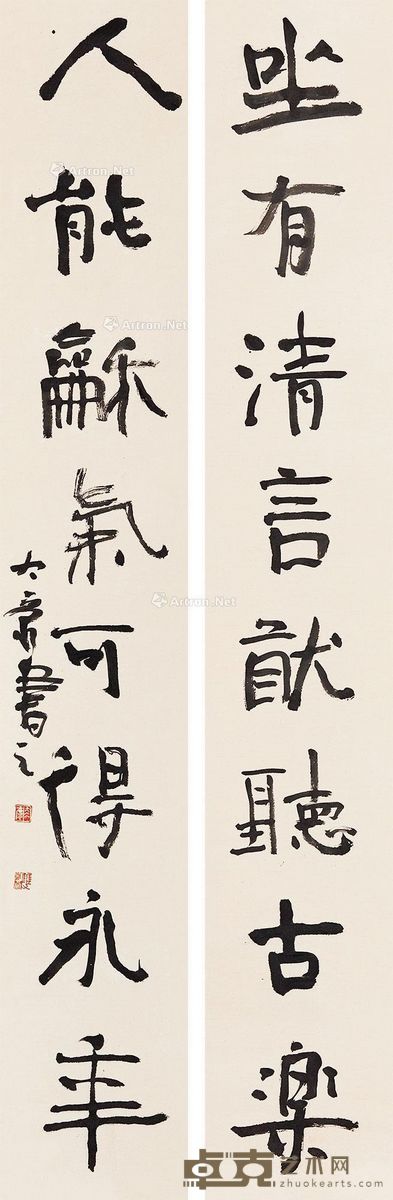 坐有清言猷聽古樂
人能龢氣可得永年
書之
Artron.Net
Artron.Net
Artron.Net
卓克艺术网
www.zhuokearts.com